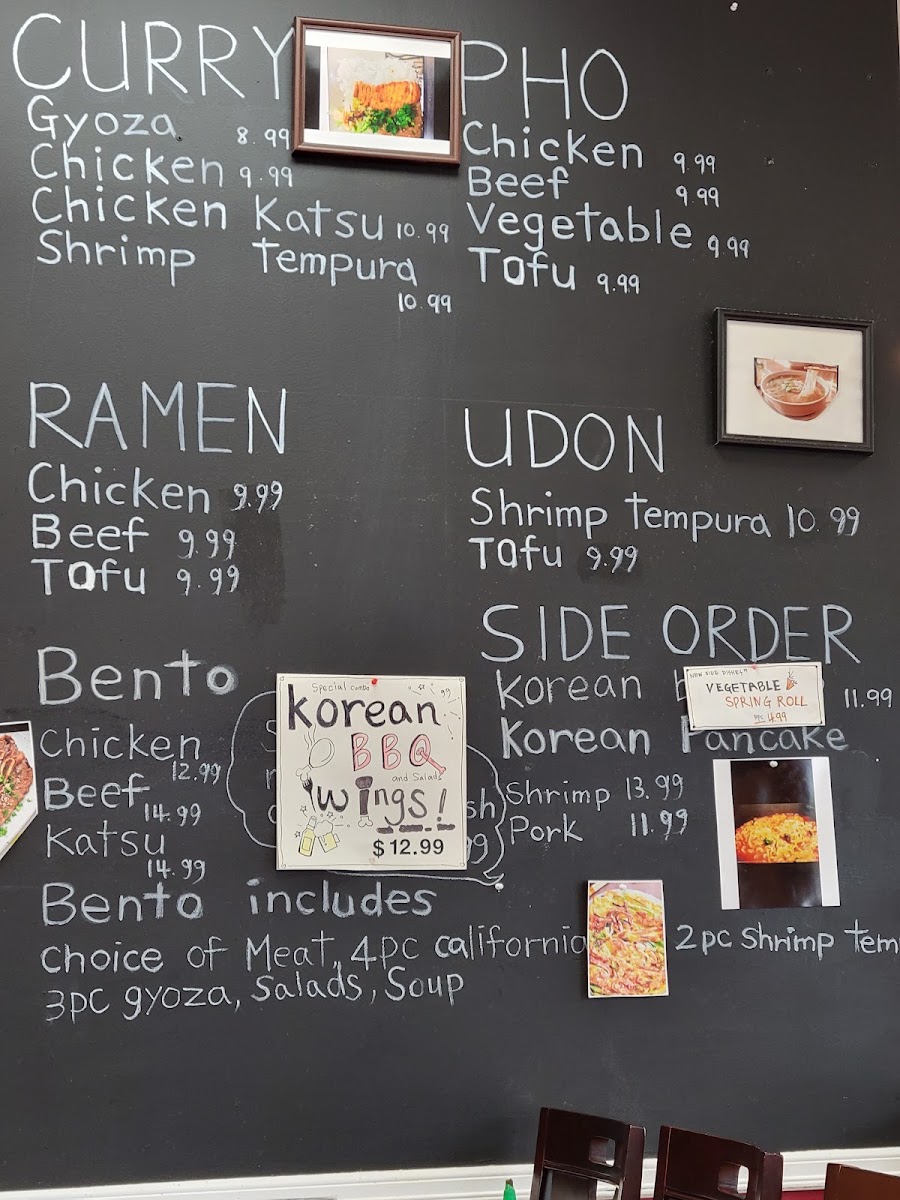 CURRY
Gyoza 8.99
Chicken 9.99
Chicken Katsu 10.99
Shrimp Tempura
10.99
PHO
Chicken 9.99
Beef 9.99
Vegetable 9.99
Tofu 9.99
RAMEN
Chicken 9.99
Beef 9.99
Tofu 9.99
UDON
Shrimp Tempura 10.99
Tofu 9.99
SIDE ORDER
Korean 11.99
VEGETABLE
SPRING ROLL
4.99
Korean Pancake
Shrimp 13.99
Pork 11.99
Bento
Chicken
12.99
Beef
14.99
Katsu
14.99
Special combo
Korean
BBQ
and Salads
Wings!
$12.99
Bento includes
Choice of Meat, 4pc california 2pc Shrimp Tem
3pc gyoza, Salads, Soup